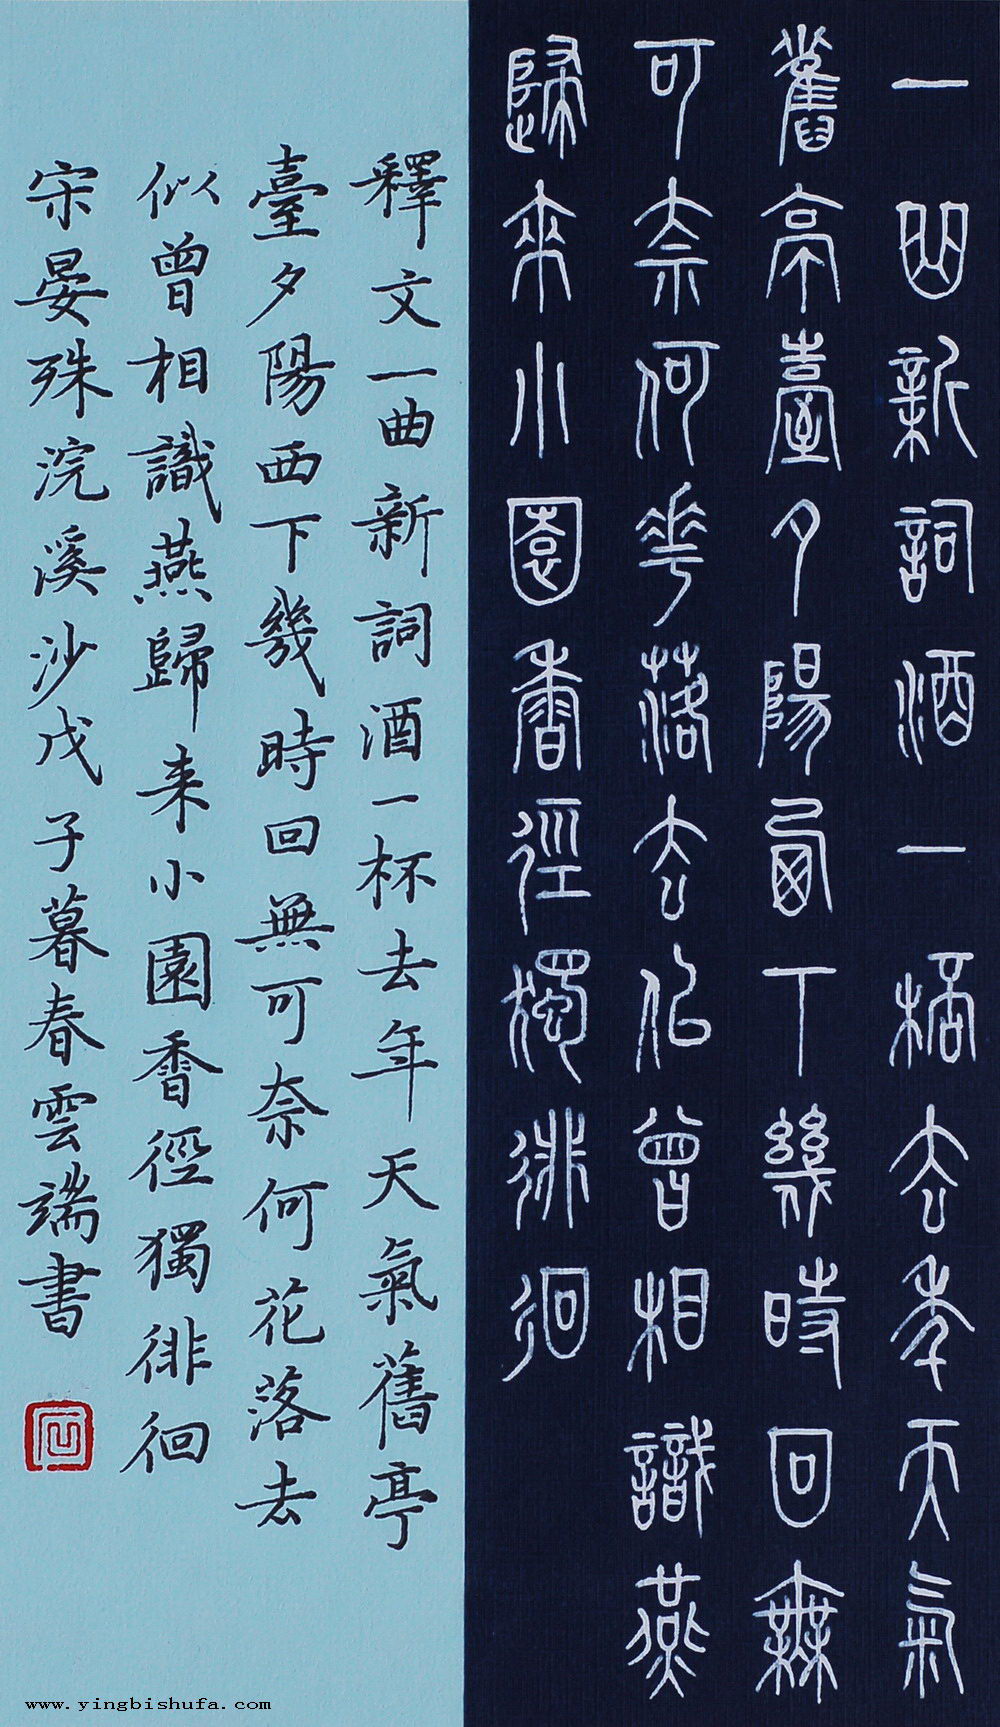 一曲新詞酒一桮去年天氣
舊亭臺夕陽西下幾時回無
可奈何花落去似曾相識燕
歸來小園香徑獨徘徊
釋文一曲新詞酒一杯去年天氣舊亭
臺夕陽西下幾時回無可奈何花落去
似曾相識燕歸来小園香徑獨徘徊
宋晏殊浣溪沙戊子暮春雲端書
www.yingbishufa.com